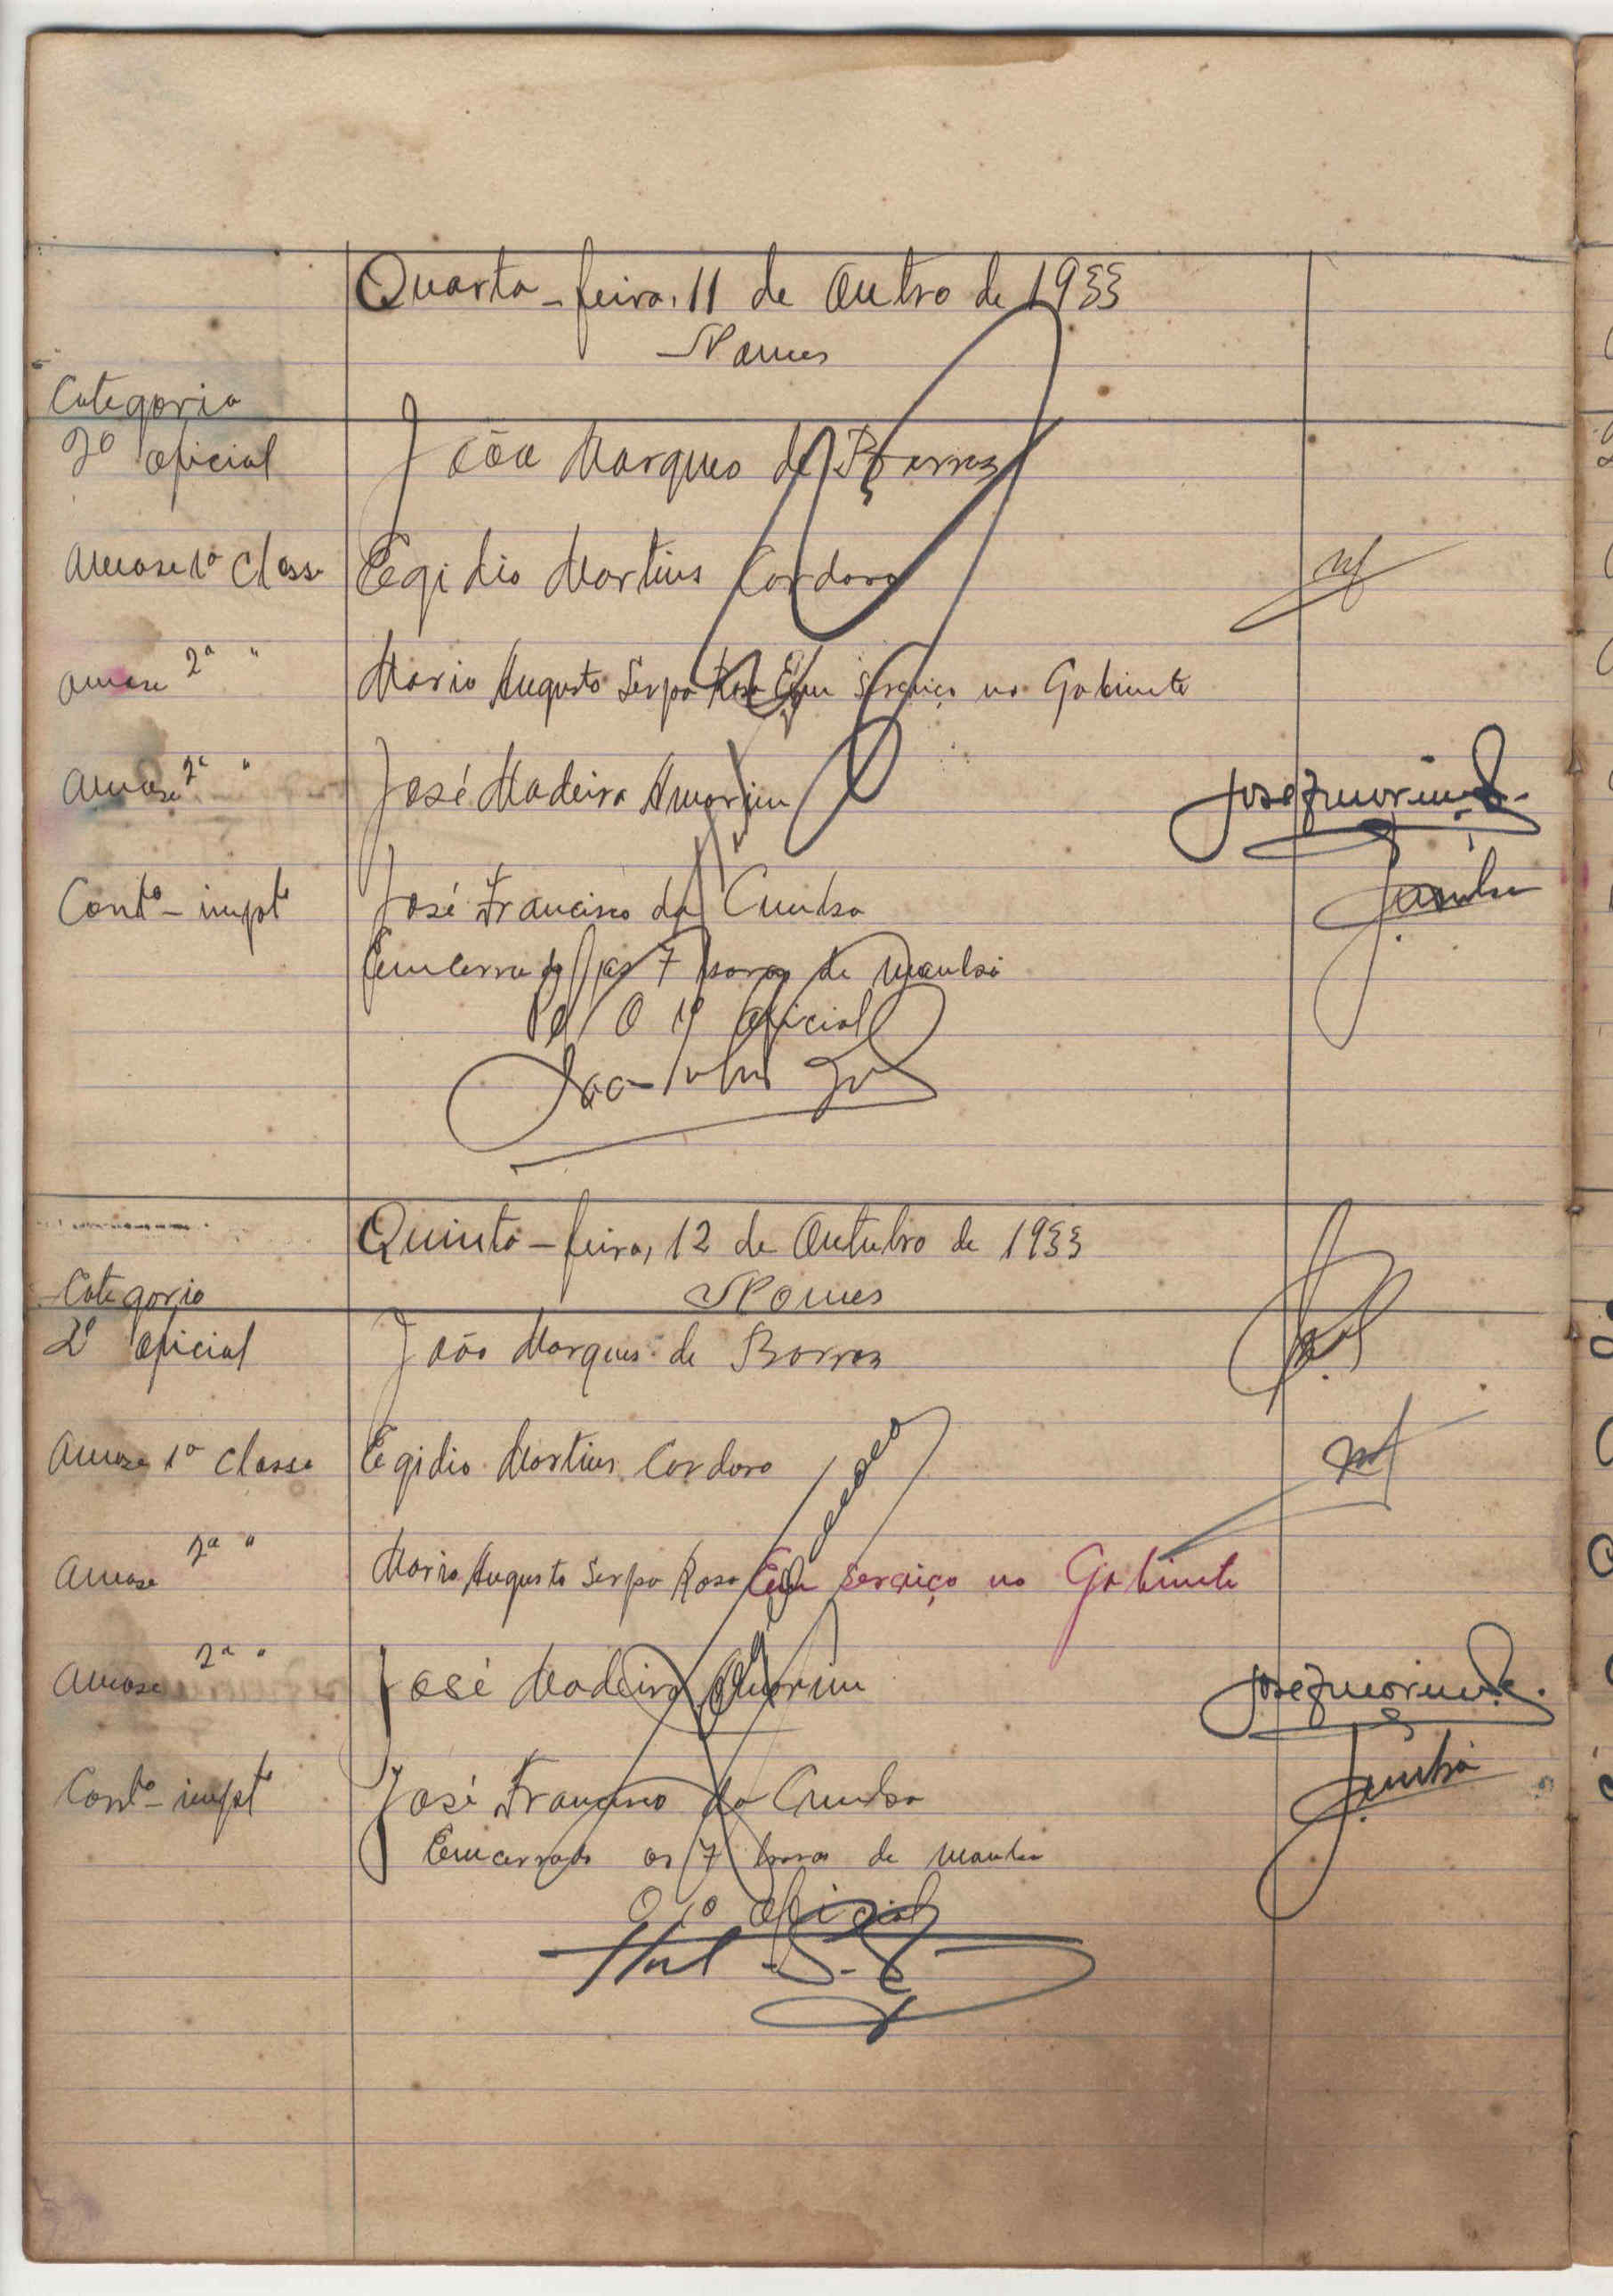 Quarta-feira, 11 de Outro de 1933
Nomes
Categoria
2º Oficial João Marques de Barros
1ª Classe Egidio Martins Cordoro
2ª " Mario Augusto Serpa Rosa Em serviço no Gabinete
2ª " José Madeira Amorim José Amorim
Contº-impte José Francisco da Cunha Cunha
Emcerrado as 7 horas de manhã
Pel O 1º Oficial
Quinta-feira, 12 de Outubro de 1933
Categoria Nomes
2º Oficial João Marques de Barros
1ª Classe Egidio Martins Cordoro
2ª " Mario Augusto Serpa Rosa Em serviço no Gabinete
2ª " José Madeira Amorim José Amorim
Contº-impte José Francisco da Cunha Cunha
Emcerrado as 7 horas de manhã
O 1º Oficial